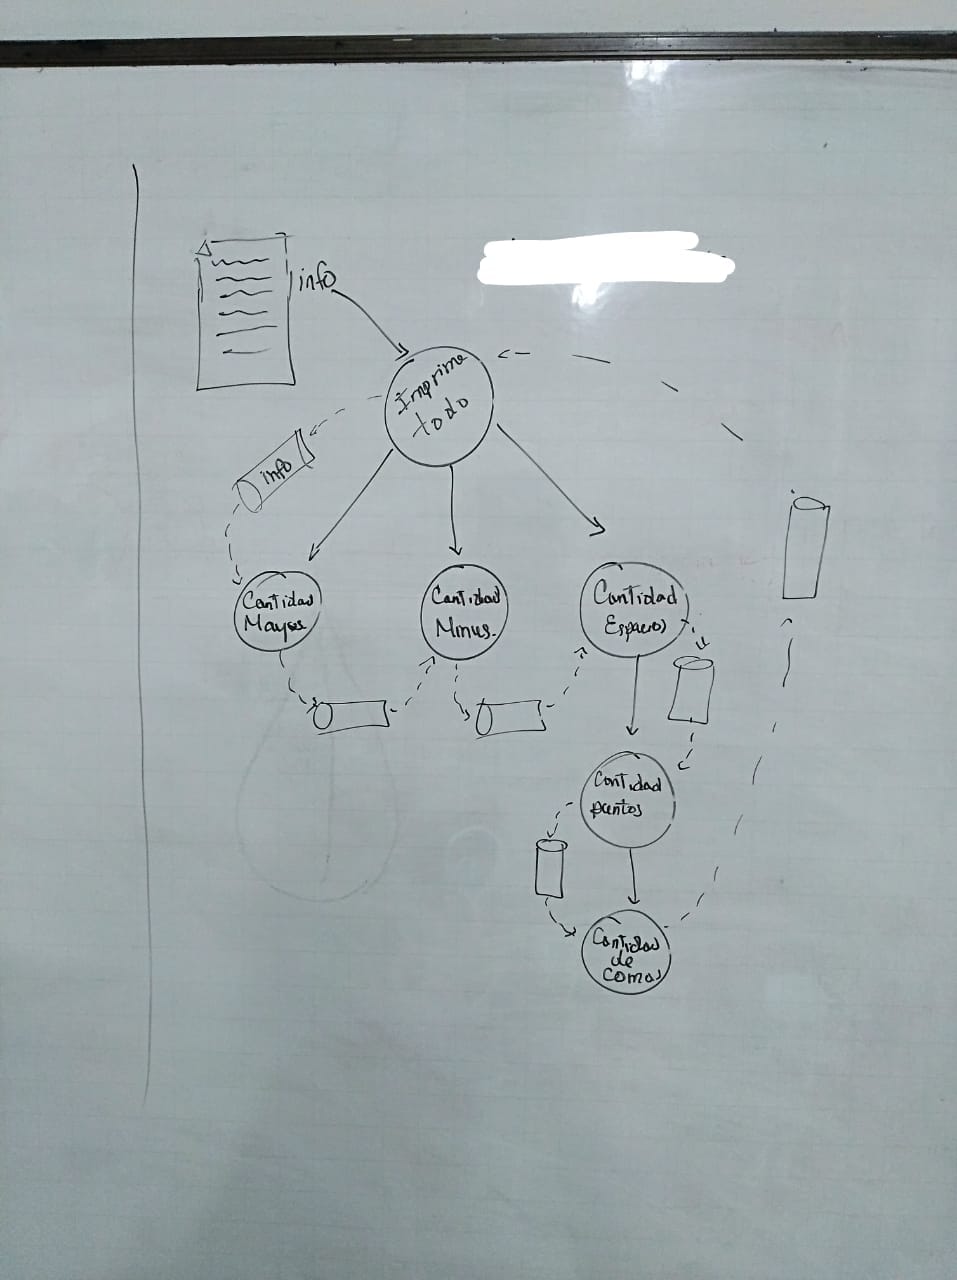 info
Imprime
todo
info
Cantidad
Mayus
Cantidad
Minus.
Cantidad
Espacios
Cantidad
puntos
Cantidad
de
comas